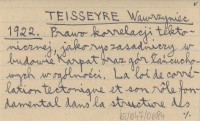 TEISSEYRE Wawrzyniec
1922. Prawo korrelacji tekto-
nicznej, jako rys zasadniczy w
budowie Karpat oraz gór łańcucho-
wych w ogólności. La loi de corré-
lation tectonique et son rôle fon-
damental dans la structure des